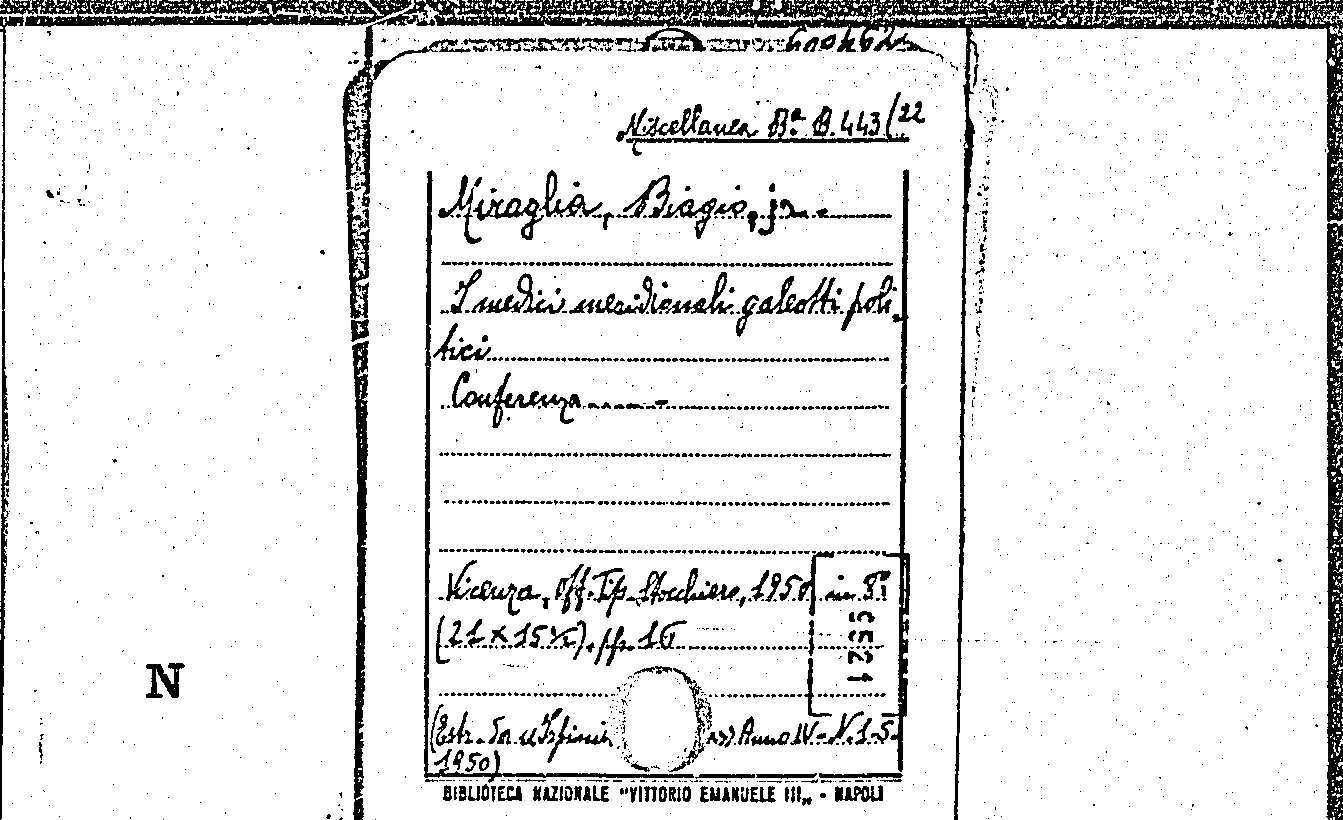 Miscellanea Bª B. 443/22
Miraglia, Biagio, jr.
I medici meridionali galeotti poli-
tici
Conferenza
Vicenza, Off. Tip. Stocchiero, 1950 in 8º
(21 × 15½). pp. 16
(Estr. da Anno IV - N. 1-5-
1950)
BIBLIOTECA NAZIONALE "VITTORIO EMANUELE III„ - NAPOLI
N